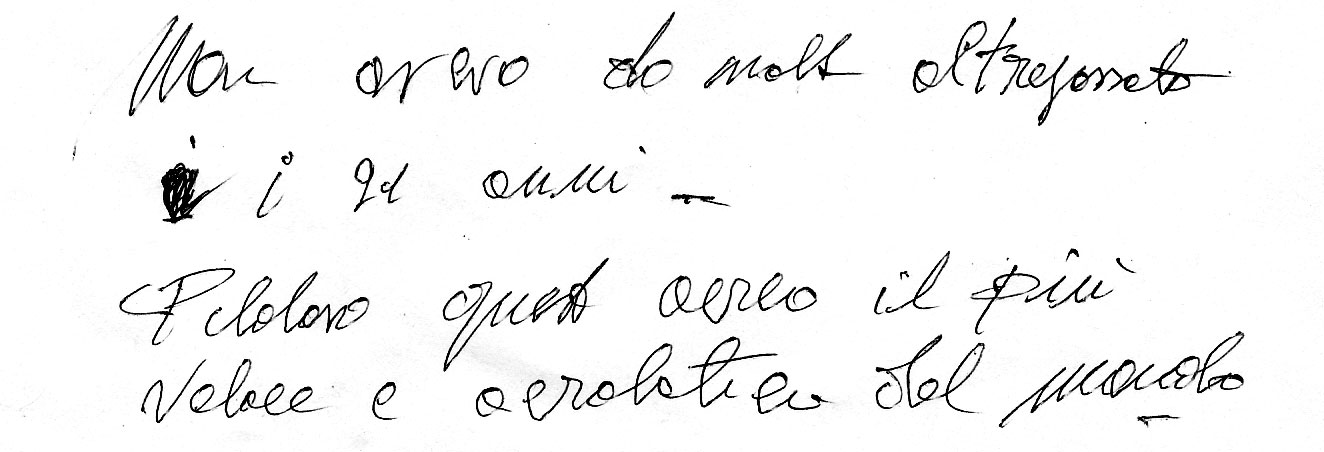 Non avevo da molto oltrepassato
i 21 anni -
Pilotavo questo aereo il più
veloce e acrobatico del mondo